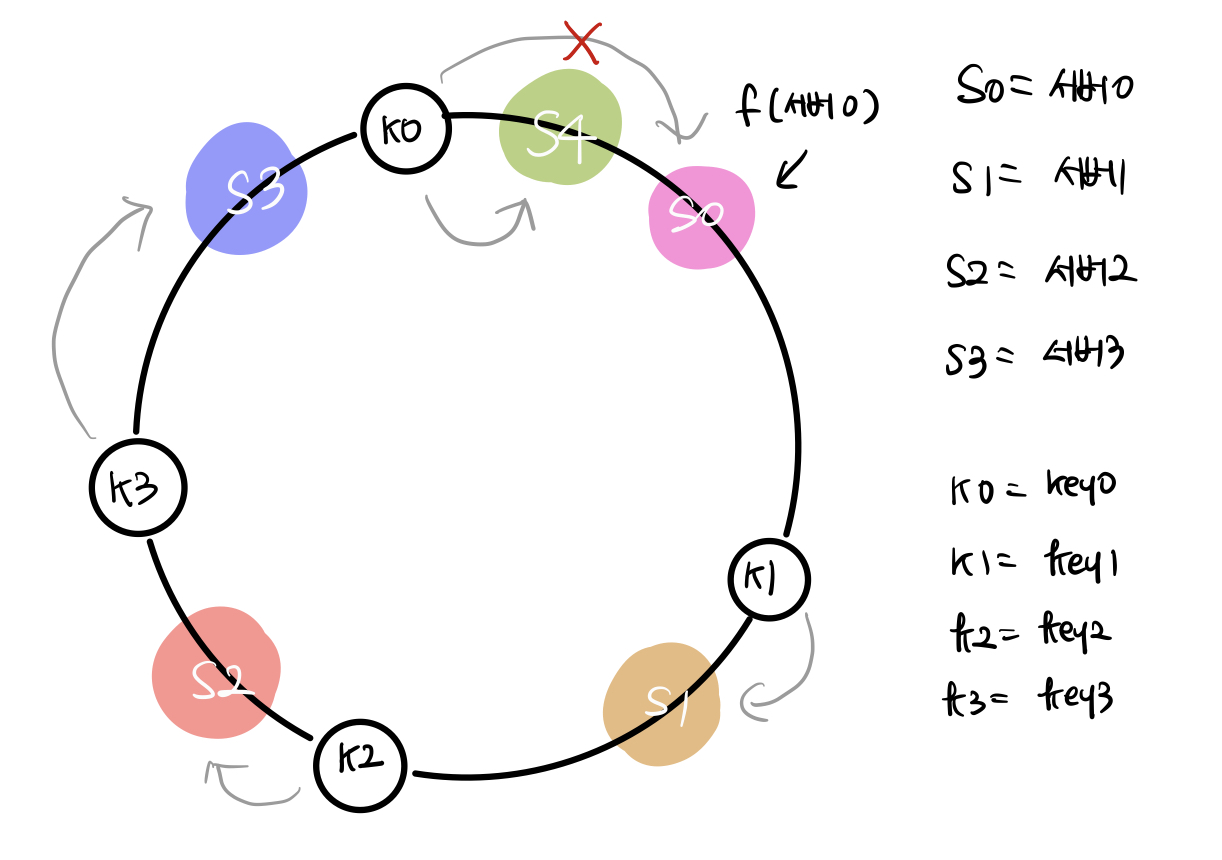 K0
S4
S3
S0
f(서버0)
K3
K1
S2
S1
K2
S0= 서버0
S1= 서버1
S2= 서버2
S3= 서버3
K0= key0
K1= key1
k2= key2
k3= key3